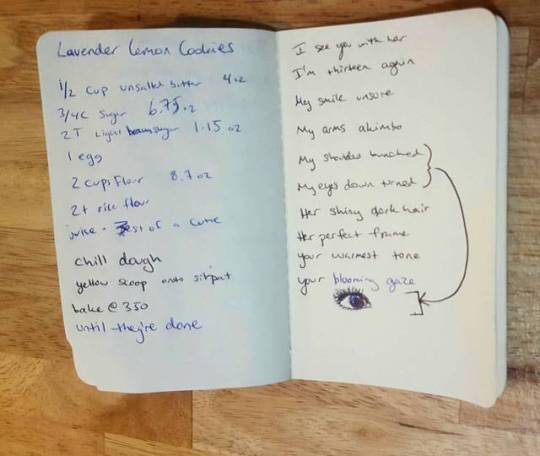 Lavender Lemon Cookies
1/2 cup unsalted butter 4 oz
3/4 c sugar 6.75 oz
2 T light brown sugar 1.15 oz
1 egg
2 cups flour 8.7 oz
2 t rice flour
Zest of a
chill dough
yellow scoop onto silpat
bake @ 350
until they're done
I see you with her
I'm thirteen again
My smile unsure
My arms akimbo
My shoulders hunched
My eyes down turned
Her shiny dark hair
Her perfect frame
your warmest tone
your blooming gaze